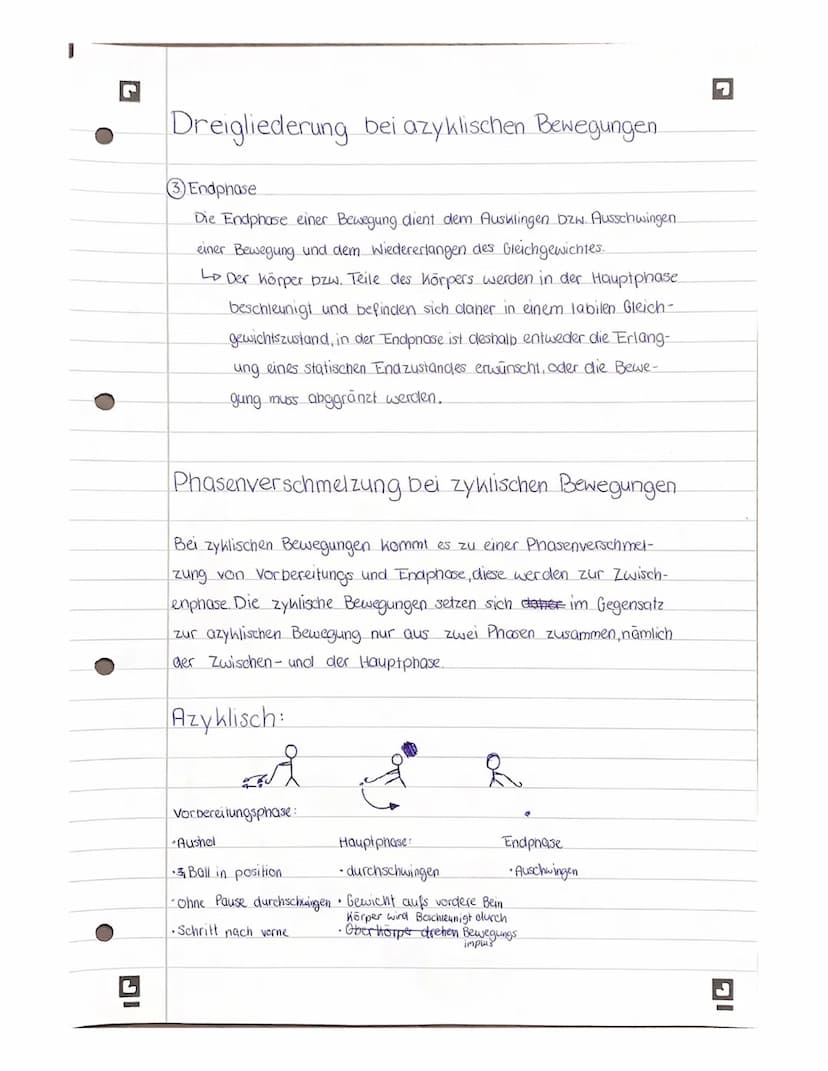 Dreigliederung bei azyklischen Bewegungen
③ Endphase
Die Endphase einer Bewegung dient dem Ausklingen bzw. Ausschwingen
einer Bewegung und dem Wiedererlangen des Gleichgewichtes.
↳ Der Körper bzw. Teile des Körpers werden in der Hauptphase
beschleunigt und befinden sich daher in einem labilen Gleich-
gewichtszustand, in der Endphase ist deshalb entweder die Erlang-
ung eines statischen Endzustandes erwünscht, oder die Bewe-
gung muss abggränzt werden.
Phasenverschmelzung bei zyklischen Bewegungen
Bei zyklischen Bewegungen kommt es zu einer Phasenverschmel-
zung von Vorbereitungs und Endphase, diese werden zur Zwisch-
enphase. Die zyklische Bewegungen setzen sich daher im Gegensatz
zur azyklischen Bewegung nur aus zwei Phasen zusammen, nämlich
der Zwischen- und der Hauptphase.
Azyklisch:
Vorbereitungsphase:
· Aushol
· Ball in position
· ohne Pause durchschwingen
· Schritt nach vorne
Hauptphase:
· durchschwingen
· Gewicht aufs vordere Bein
Körper wird Beschleunigt durch
· Oberkörper drehen Bewegungs
impuls
Endphase
· Auschwingen